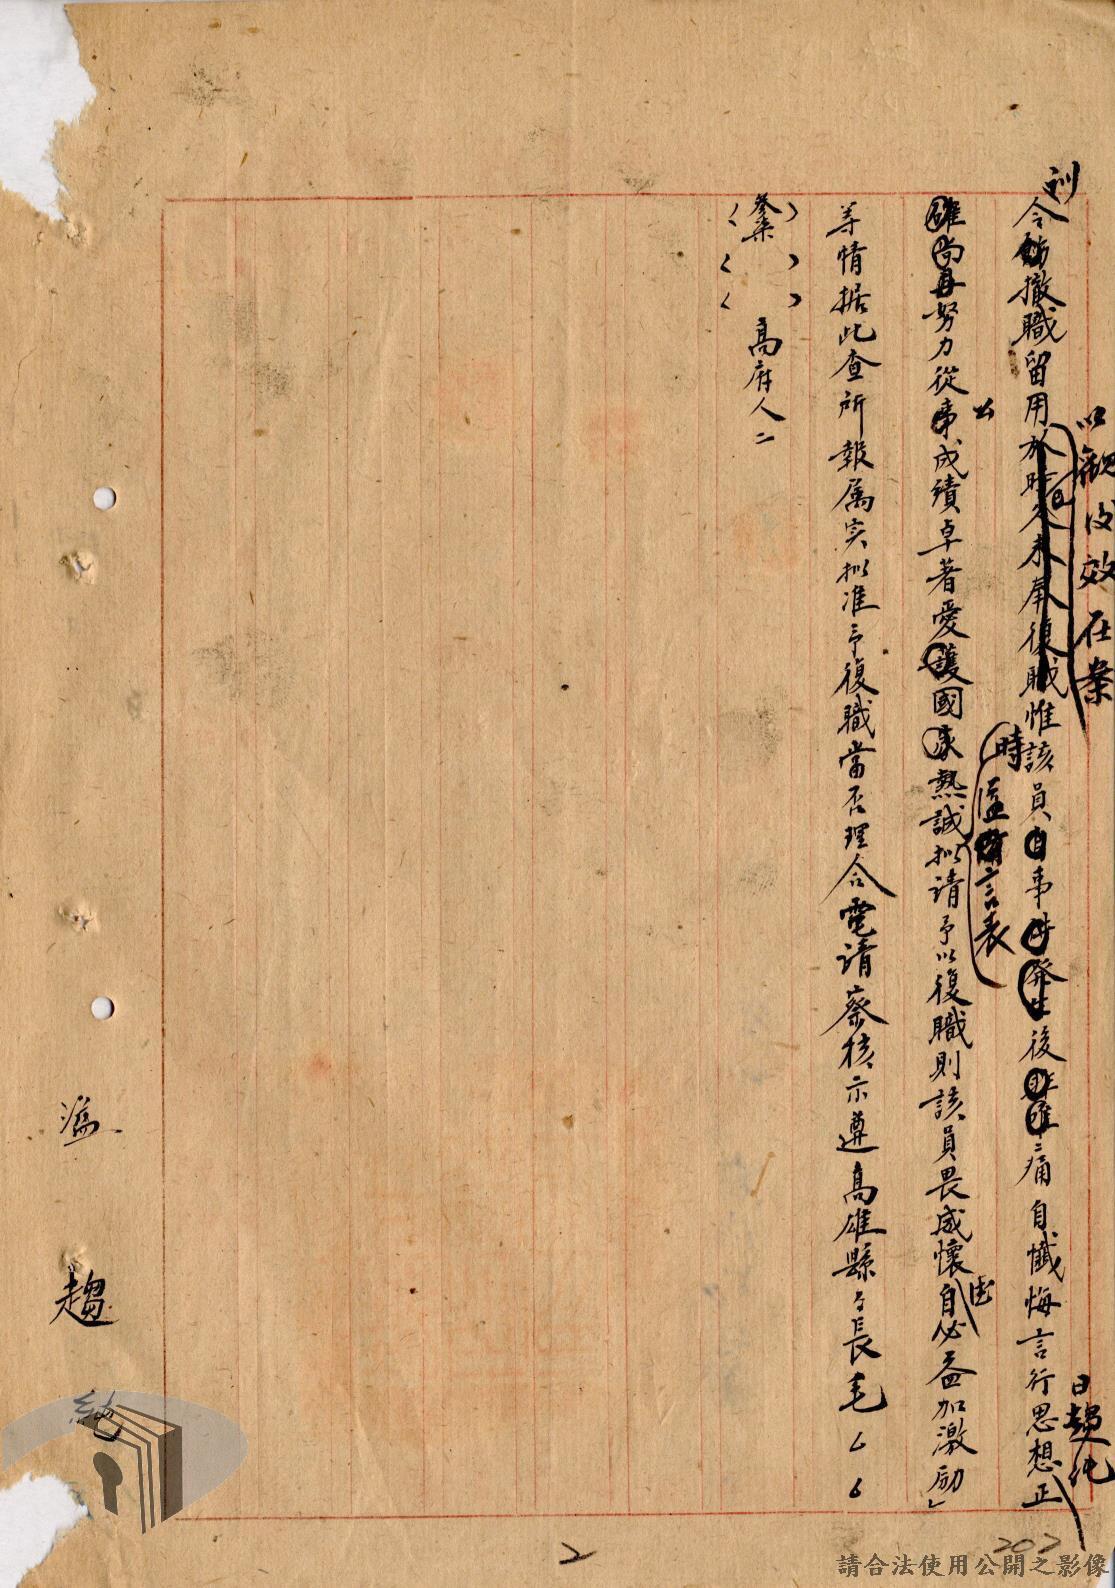 訓
令飭撤職留用於時日久未奉復職惟該員自事件發生後時二痛自懺悔言行思想正
以觀後效在案
時溢言表
日趨純
確尚再努力從事成績卓著愛護國家熱誠拟請予以復職則該員畏威懷自必益加激励」
公
德
等情据此查所報属实拟准予復職當否理合電請察核示遵高雄縣々長毛
(叅柒)
高府人二
溢
趨
純
2
202
請合法使用公開之影像